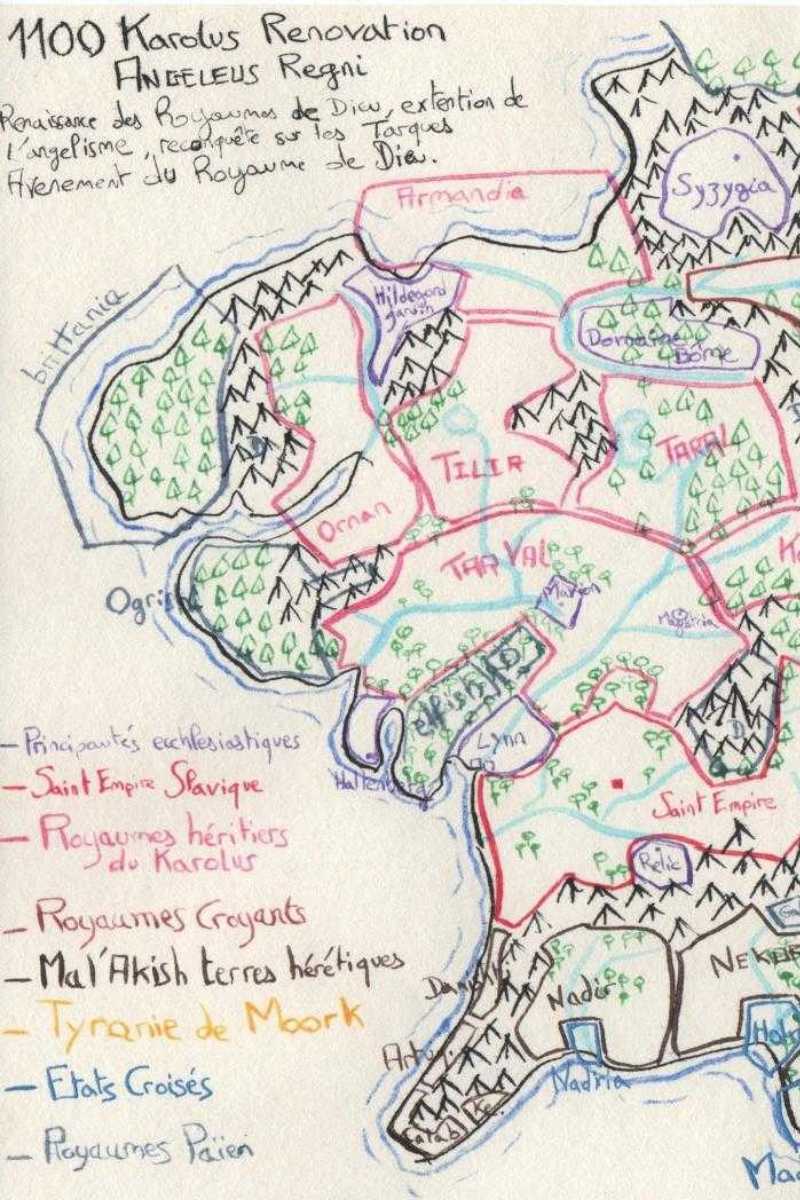 1100 Karolus Renovation
ANGELEUS Regni
Renaissance des Royaumes de Dieu, extention de
l'angelisme, reconquête sur les Tarques
Avenement du Royaume de Dieu.
Syzygia
Armandia
brittania
Hildegard
gardin
Domaine
Bôme
TARAL
TILIA
Ornan
TAR VAL
Ogris
Marien
Magistria
elfish
Lynn
D
Saint Empire
Relic
Nadir
Nadria
– Principautés ecchlesiastiques
– Saint Empire Slavique
– Royaumes héritiers
du Karolus
– Royaumes Croyants
– Mal'Akish terres hérétiques
– Tyranie de Moork
– Etats Croisés
– Royaumes Païen